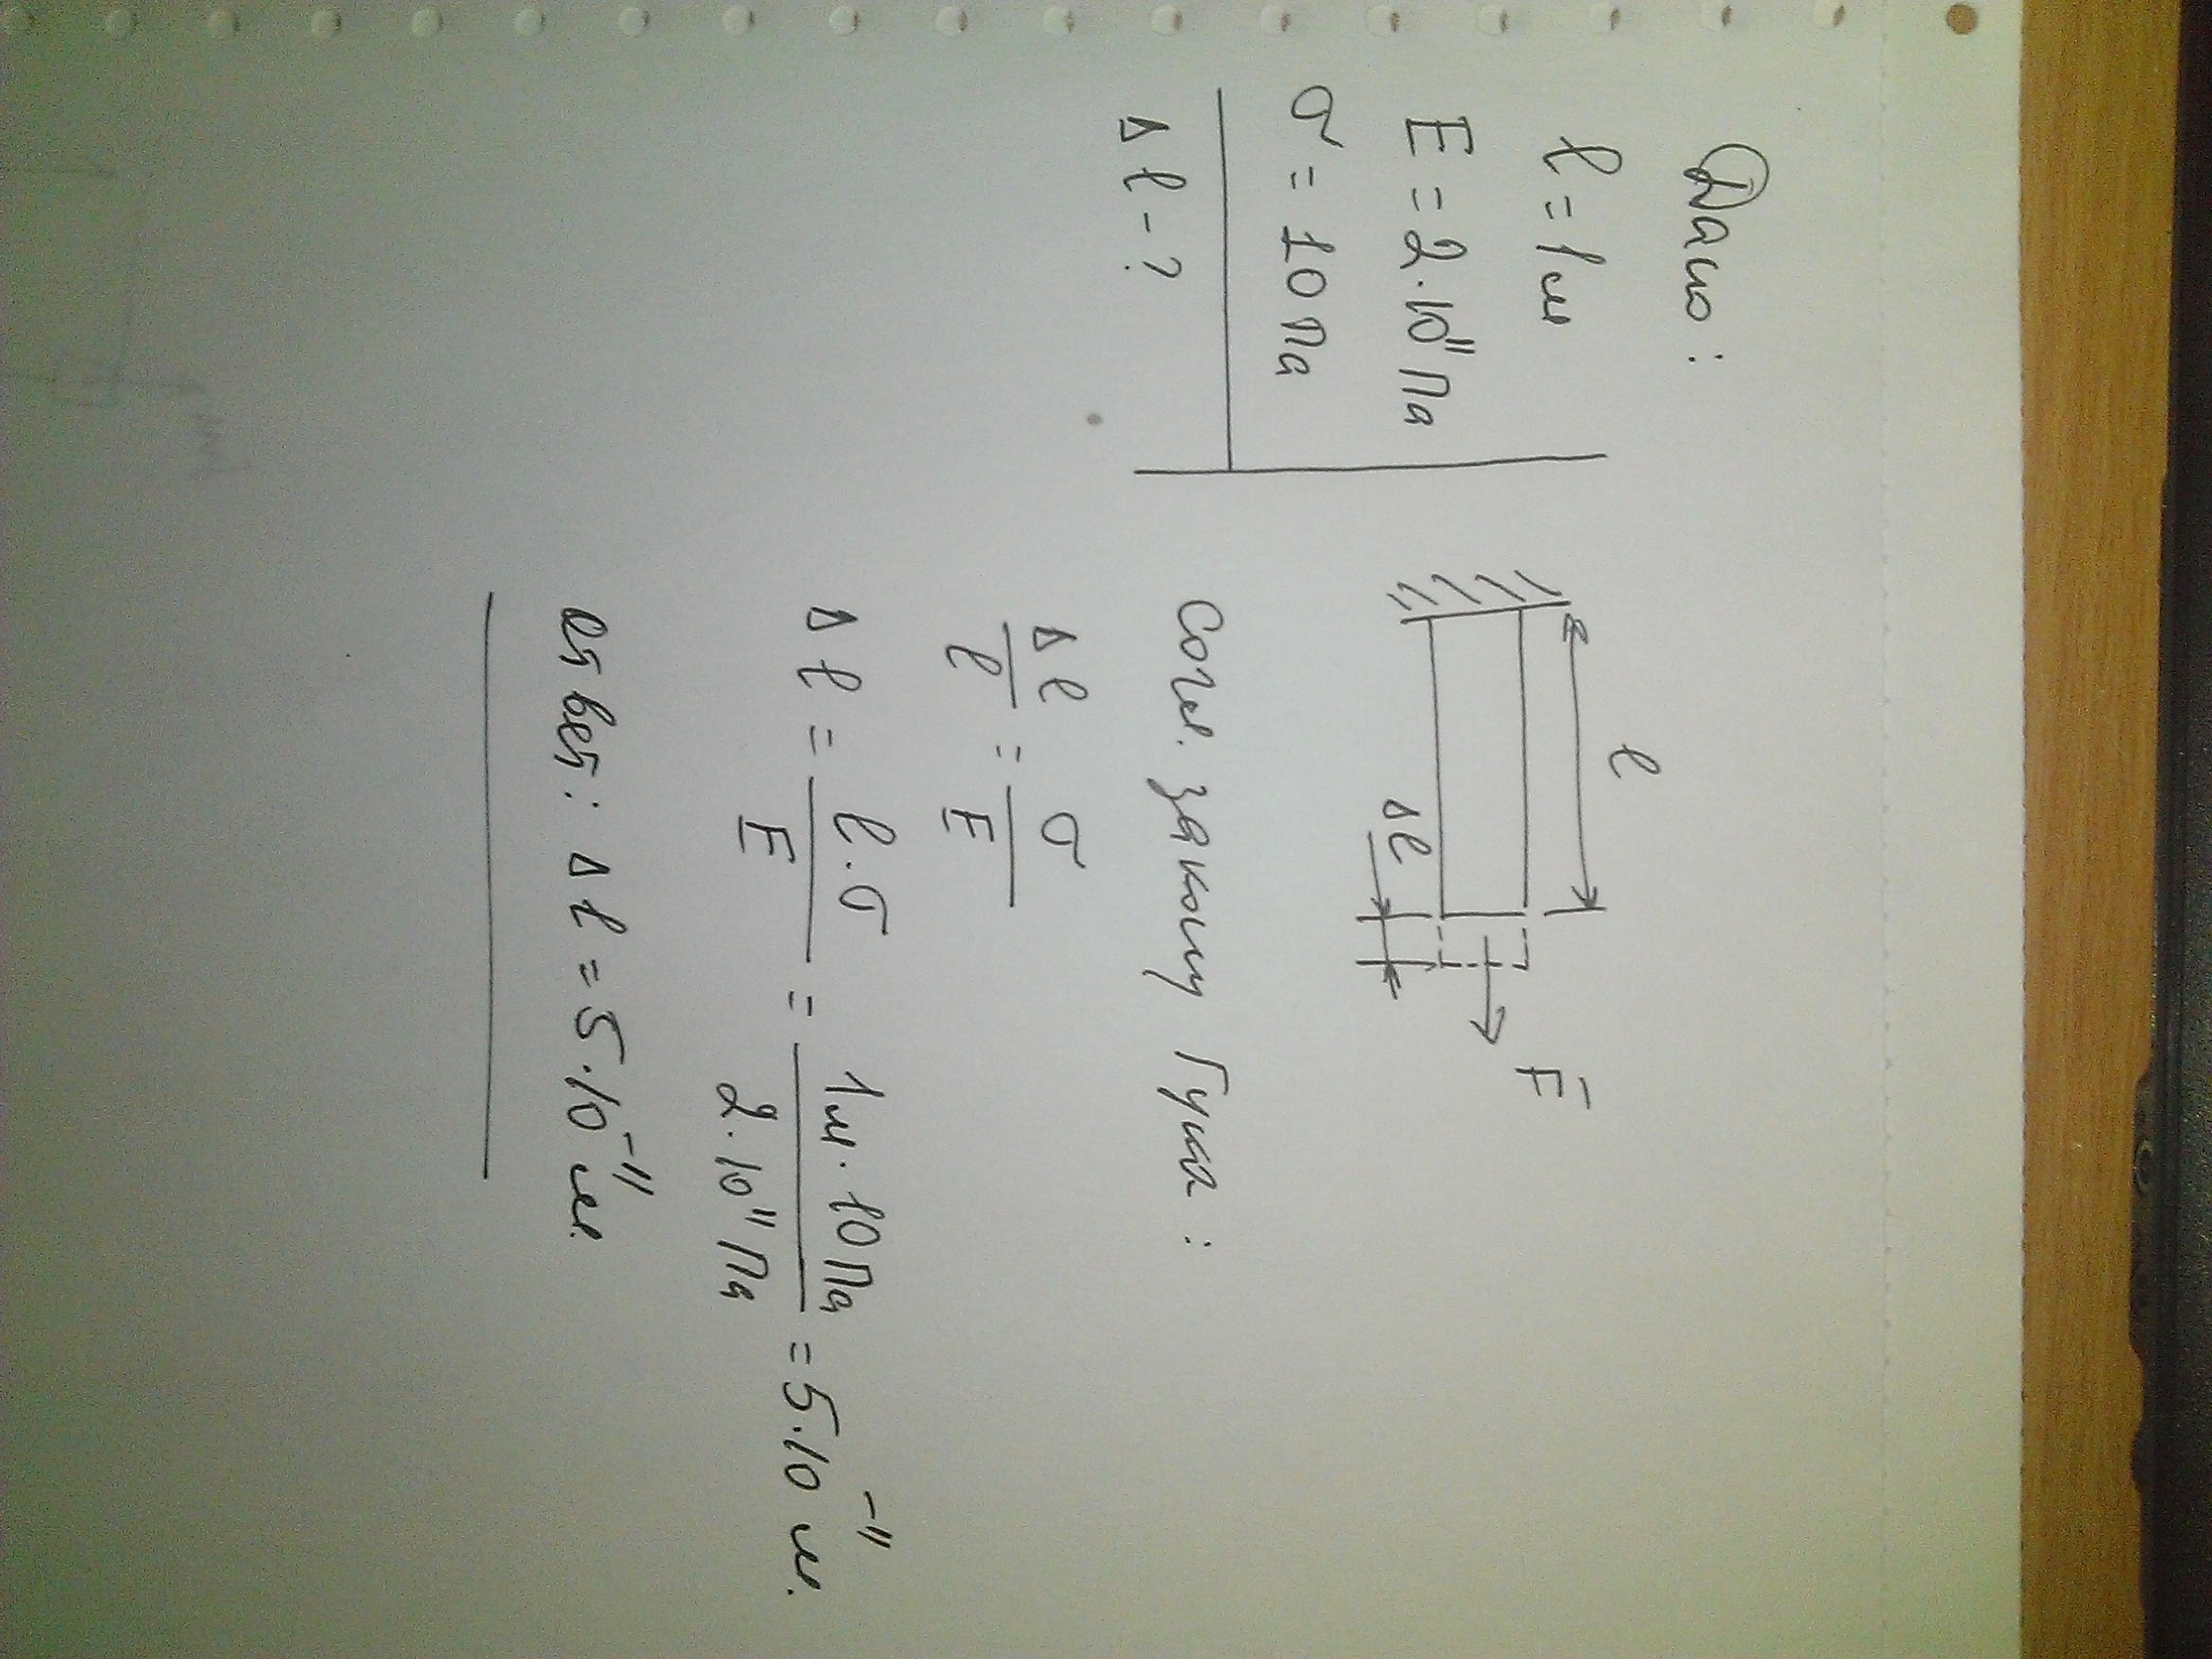 Дано:
l = 1 м
E = 2·10¹¹ Па
σ = 10 Па
Δl - ?
l
Δl
F̄
Согл. закону Гука:
Δl/l = σ/E
Δl = l·σ/E = 1м·10Па/2·10¹¹Па = 5·10⁻¹¹ м.
Ответ: Δl = 5·10⁻¹¹ м.